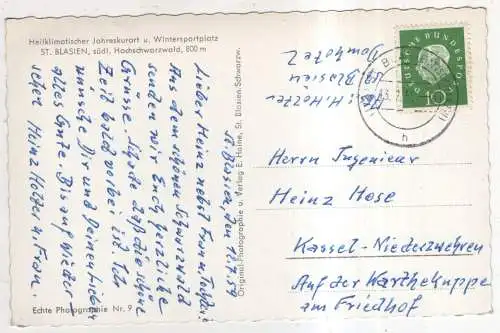 Heilklimatischer Jahreskurort u. Wintersportplatz
ST. BLASIEN, südl. Hochschwarzwald, 800 m
St. Blasien, den 12.7.59
Lieber Heinz nebst Frau u. Tochter
Aus dem schönen Schwarzwald
senden wir Euch herzliche
Grüsse. Schade daß die schöne
Zeit bald vorbei ist. Ich
wünsche Dir und Deinen Lieben
alles Gute. Bis auf Wieder-
sehen Heinz Holzer u. Frau.
Echte Photographie Nr. 9
Original-Photographie u. Verlag E. Heine, St. Blasien/Schwarzw.
H. Holzer
St. Blasien
DEUTSCHE BUNDESPOST
10
h
Herrn Ingenieur
Heinz Hose
Kassel-Niederzwehren
Auf der Warthekuppe
am Friedhof